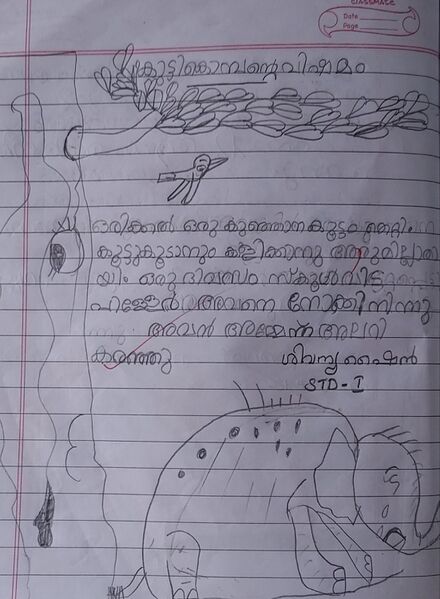 CLASSMATE
Date
Page
കുട്ടികൊമ്പന്റെ വിഷമം
ഒരിക്കൽ ഒരു കുഞ്ഞാന കൂട്ടം തെറ്റി
കൂട്ടുകൂടാനും കളിക്കാനും ആരുമില്ലാതാ
യി. ഒരു ദിവസം സ്കൂൾ വിട്ടു
പിള്ളേർ അവനെ നോക്കി നിന്നു
അവൻ അമ്മേന്ന് അലറി
കരഞ്ഞു ശിവന്യ ഷൈൻ
STD-I